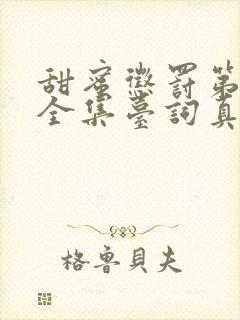 甜蜜懲罰第
全集臺詞真
格魯貝夫